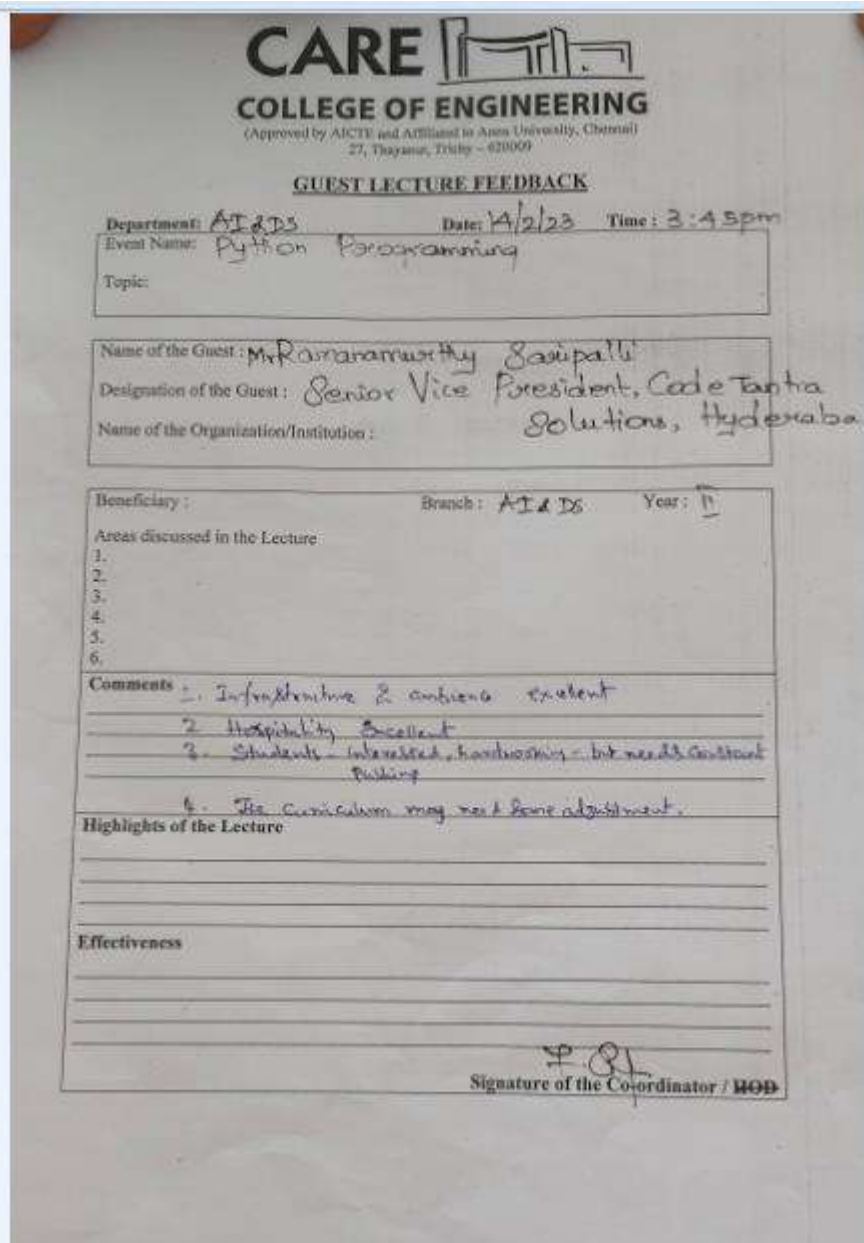 CARE
COLLEGE OF ENGINEERING
(Approved by AICTE and Affiliated to Anna University, Chennai)
27, Thayanur, Trichy – 620009
GUEST LECTURE FEEDBACK
Department: AI & DS Date: 14/2/23 Time : 3:45pm
Event Name: Python Programming
Topic:
Name of the Guest : Mr Ramanamurthy
Designation of the Guest : Senior Vice President, Code Tantra
Solutions, Hyderaba
Name of the Organization/Institution :
Beneficiary : Branch : AI & DS Year : II
Areas discussed in the Lecture
1.
2.
3.
4.
5.
6.
Comments 1. Infrastructure & ambience excellent
2. Hospitality Excellent
3. Students - interested, hardworking - but needs constant
pushing
4. The curriculum may need some adjustment.
Highlights of the Lecture
Effectiveness
Signature of the Co-ordinator / HOD